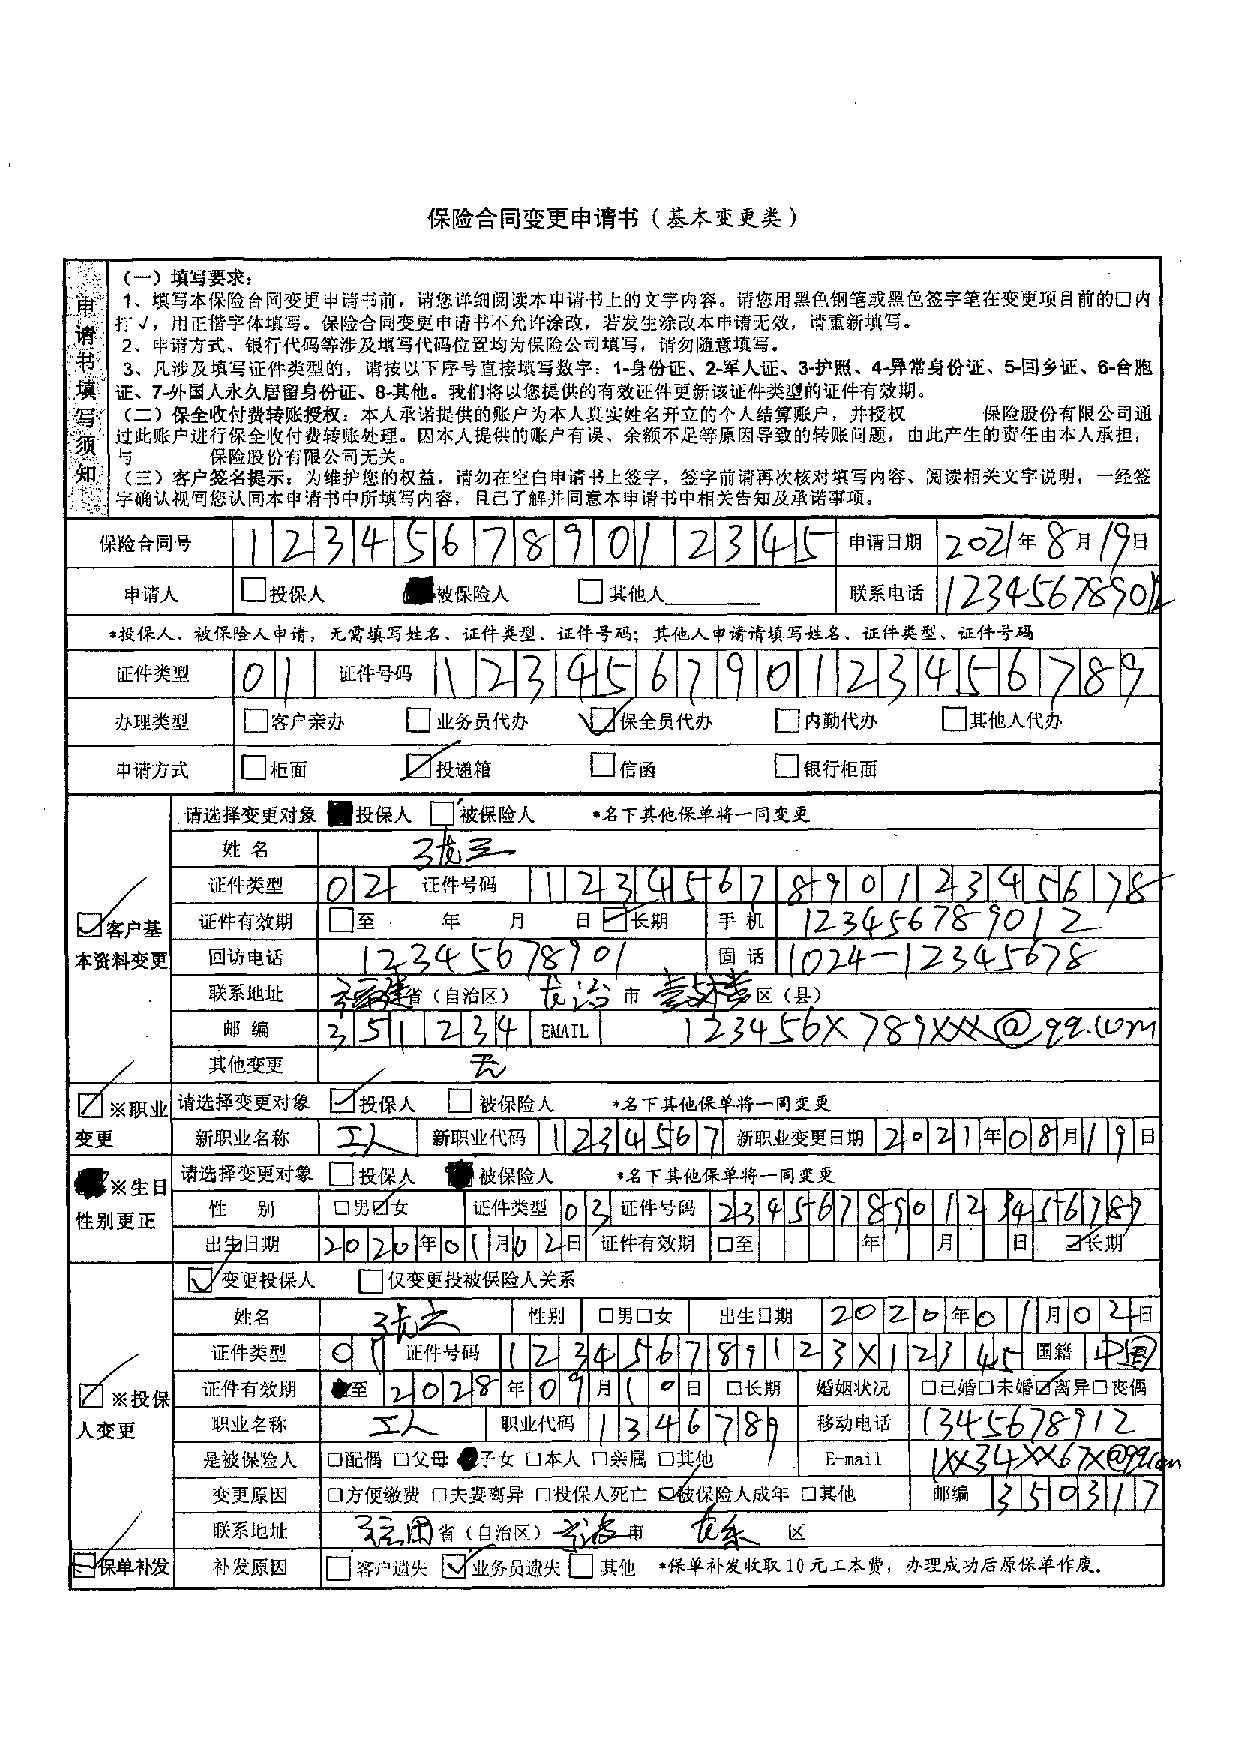 保险合同变更申请书（基本变更类）
申请书填写须知
（一）填写要求：
1、填写本保险合同变更申请书前，请您详细阅读本申请书上的文字内容。请您用黑色钢笔或黑色签字笔在变更项目前的□内
打√，用正楷字体填写。保险合同变更申请书不允许涂改，若发生涂改本申请无效，请重新填写。
2、申请方式、银行代码等涉及填写代码位置均为保险公司填写，请勿随意填写。
3、凡涉及填写证件类型的，请按以下序号直接填写数字：1-身份证、2-军人证、3-护照、4-异常身份证、5-回乡证、6-台胞
证、7-外国人永久居留身份证、8-其他。我们将以您提供的有效证件更新该证件类型的证件有效期。
（二）保全收付费转账授权：本人承诺提供的账户为本人真实姓名开立的个人结算账户，并授权 保险股份有限公司通
过此账户进行保全收付费转账处理。因本人提供的账户有误、余额不足等原因导致的转账问题，由此产生的责任由本人承担，
与 保险股份有限公司无关。
（三）客户签名提示：为维护您的权益，请勿在空白申请书上签字，签字前请再次核对填写内容、阅读相关文字说明，一经签
字确认视同您认同本申请书中所填写内容，且已了解并同意本申请书中相关告知及承诺事项。
保险合同号 123456789012345 申请日期 2021年8月19日
申请人 □投保人 ■被保险人 □其他人________ 联系电话 123456789012
*投保人、被保险人申请，无需填写姓名、证件类型、证件号码；其他人申请请填写姓名、证件类型、证件号码
证件类型 01 证件号码 112345679012345678 9
办理类型 □客户亲办 □业务员代办 ☑保全员代办 □内勤代办 □其他人代办
申请方式 □柜面 ☑投递箱 □信函 □银行柜面
☑客户基本资料变更
请选择变更对象 ■投保人 □被保险人 *名下其他保单将一同变更
姓 名 张三
证件类型 02 证件号码 123456789012345678
证件有效期 □至 年 月 日 ☑长期 手 机 123456789012
回访电话 12345678901 固 话 1024-12345678
联系地址 福建省（自治区） 龙治 市 区（县）
邮 编 351234 EMAIL 123456X789XXX@qq.com
其他变更 无
☑※职业变更
请选择变更对象 ☑投保人 □被保险人 *名下其他保单将一同变更
新职业名称 工人 新职业代码 1234567 新职业变更日期 2021年08月19日
■※生日性别更正
请选择变更对象 □投保人 ■被保险人 *名下其他保单将一同变更
性 别 □男☑女 证件类型 03 证件号码 234567890123456789
出生日期 2020年01月02日 证件有效期 □至 年 月 日 ☑长期
☑※投保人变更
☑变更投保人 □仅变更投被保险人关系
姓名 张六 性别 □男□女 出生日期 2020年01月02日
证件类型 01 证件号码 123456789123X12345 国籍 中国
证件有效期 ■至 2028年09月10日 □长期 婚姻状况 □已婚□未婚☑离异□丧偶
职业名称 工人 职业代码 1346789 移动电话 1345678912
是被保险人 □配偶 □父母 ■子女 □本人 □亲属 □其他 E-mail 1XX34XX67X@qq.com
变更原因 □方便缴费 □夫妻离异 □投保人死亡 ☑被保险人成年 □其他 邮编 350317
联系地址 省（自治区） 宁波市 区
☑保单补发 补发原因 □客户遗失 ☑业务员遗失 □其他 *保单补发收取10元工本费，办理成功后原保单作废。